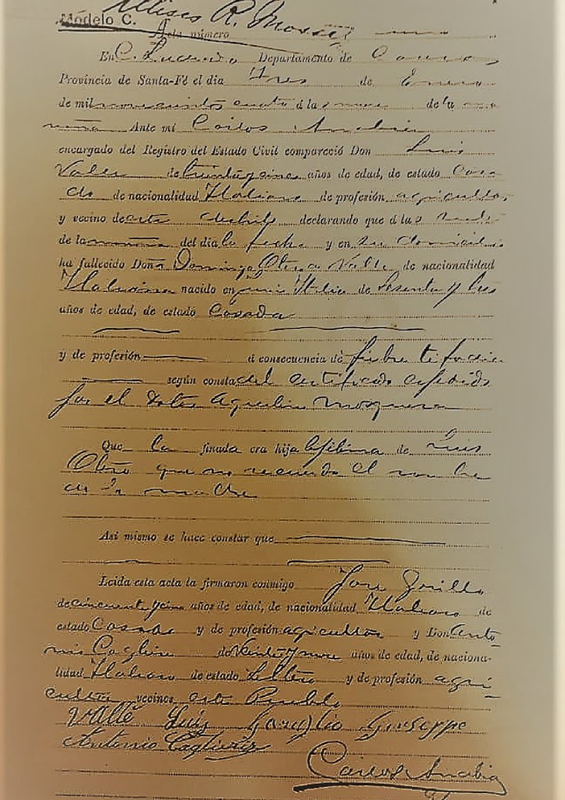 Modelo C. Ulises R. Mosset
Acta número
En C. Lucero Departamento de
Provincia de Santa-Fé el día Tres de Enero
de mil novecientos cuatro á las nueve de la ma
ñana Ante mí Carlos Anabia
encargado del Registro del Estado Civil compareció Don Luis
Valle de treinta y cinco años de edad, de estado Casa
do de nacionalidad Italiano de profesión agricultor
y vecino de este declarando que á las
de la mañana del día la fecha y en su domicilio
ha fallecido Doña Otero Valle de nacionalidad
Italiana nacido en Italia de Sesenta y tres
años de edad, de estado Casada
y de profesión á consecuencia de fiebre tifoidea
según consta del certificado expedido
por el Mosquera
Que la finada era hija lejitima de Luis
Otero que no recuerda el nombre
de la madre
Asi mismo se hace constar que
Leida esta acta la firmaron conmigo José
de cincuenta y cinco años de edad, de nacionalidad Italiano de
estado Casado y de profesión agricultor y Don Anto
nio de veinte y nueve años de edad, de naciona-
lidad Italiano de estado Soltero y de profesión agri
cultor vecinos este Pueblo
Valle Luis Giuseppe
Antonio
Carlos Anabia